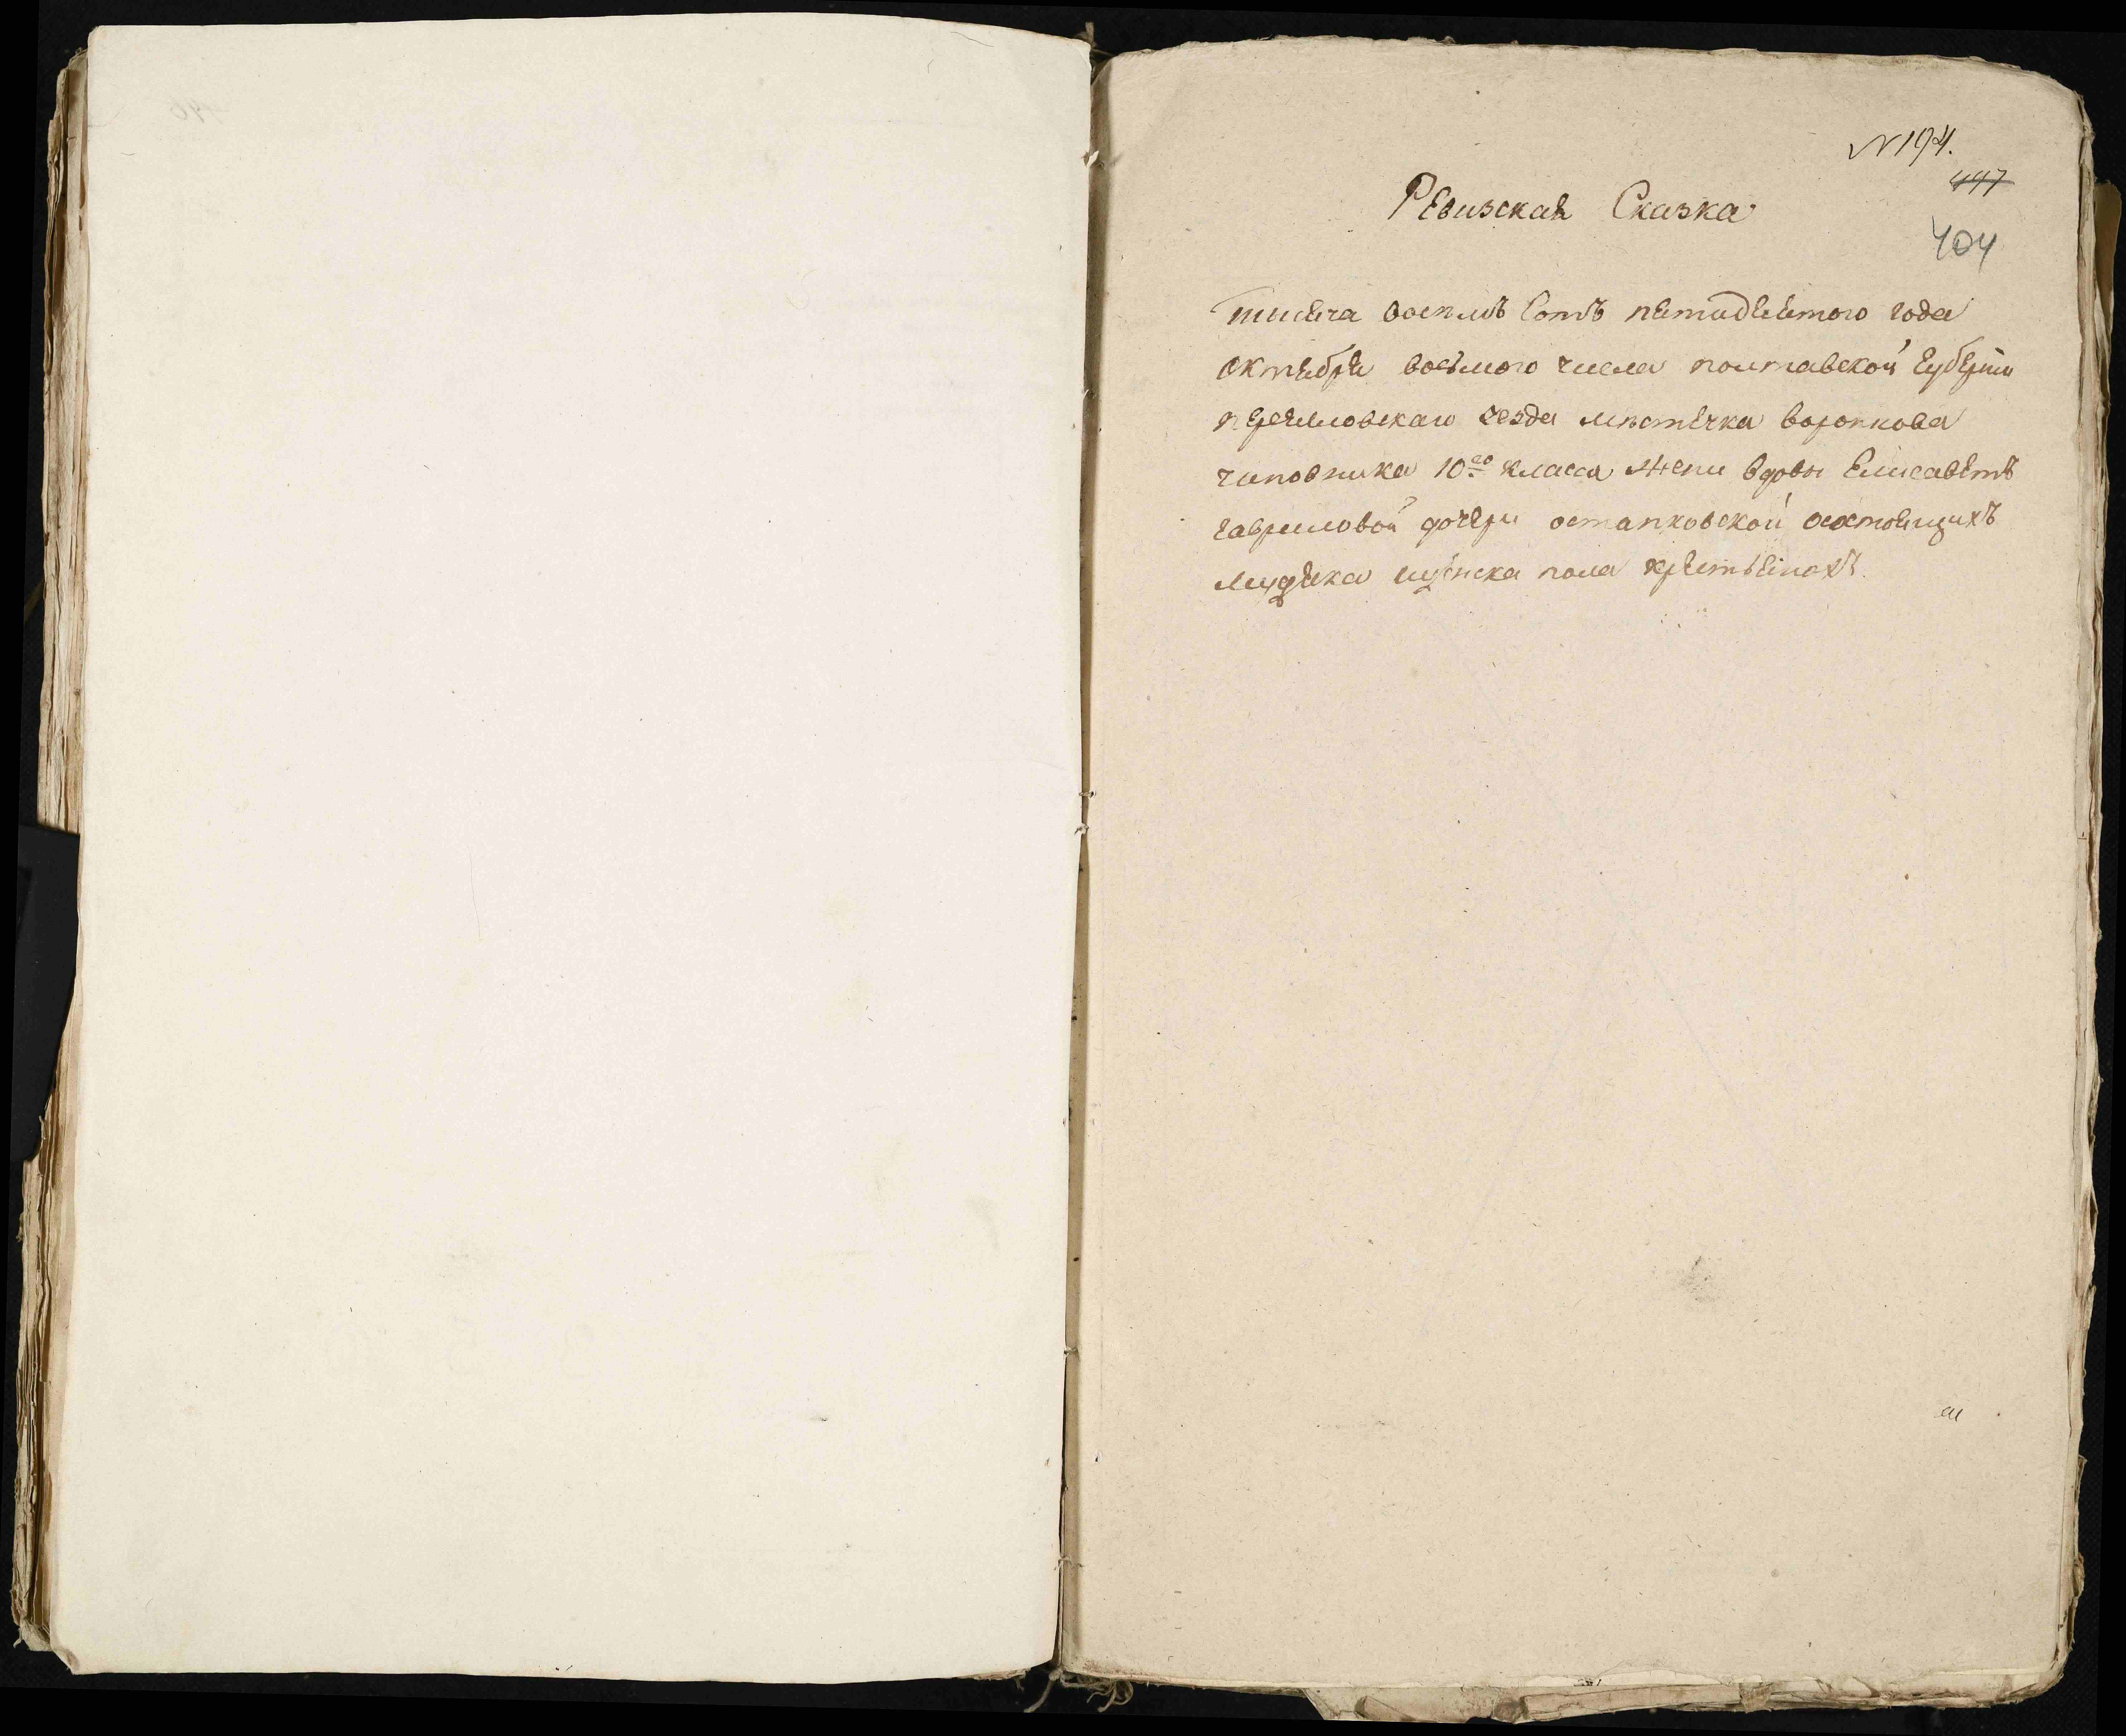 № 194.
447
Ревизская Сказка
404
тисяча восемъ Сотъ пятидесятого года
октября восьмого числа полтавской губернии
переяловскаго уезда местечка воронкова
чиновника 10го класса жени вдовы Елисаветъ
гавриловой дочери остапковской состоящихъ
мужеска женска пола крестьянахъ.